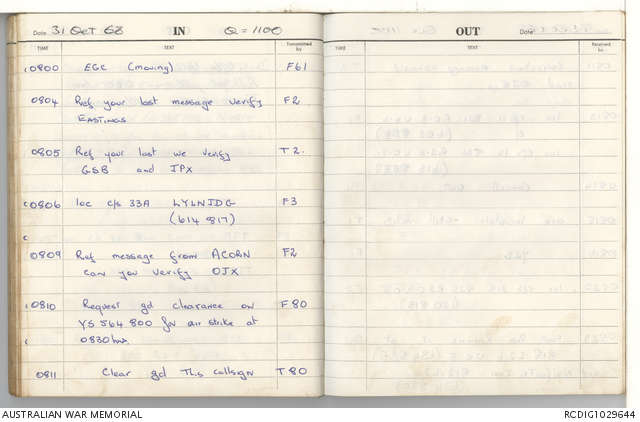 Date 31 Oct 68 IN Q = 1100
TIME TEXT Transmitted by
0800 EGC (moving) F61
0804 Ref your last message verify F2
EASTINGS
0805 Ref your last we verify T2.
GSB and JPX
0806 loc c/s 33A LYLNJDG F3
(614 817)
0809 Ref message from ACORN F2
can you verify OJX
0810 Request gd clearance on F80
YS 564 800 for air strike at
0830 hrs
0811 Clear gd This callsign T80
OUT Date
TIME TEXT Received by
AUSTRALIAN WAR MEMORIAL RCDIG1029644